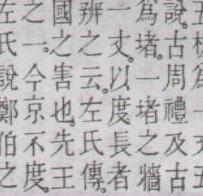 說。古周禮及古
為堵。一堵之牆
一丈。以度長者
辨之云。左氏傳。
國之害也。先王
之一。今京不度。
左氏說鄭伯之